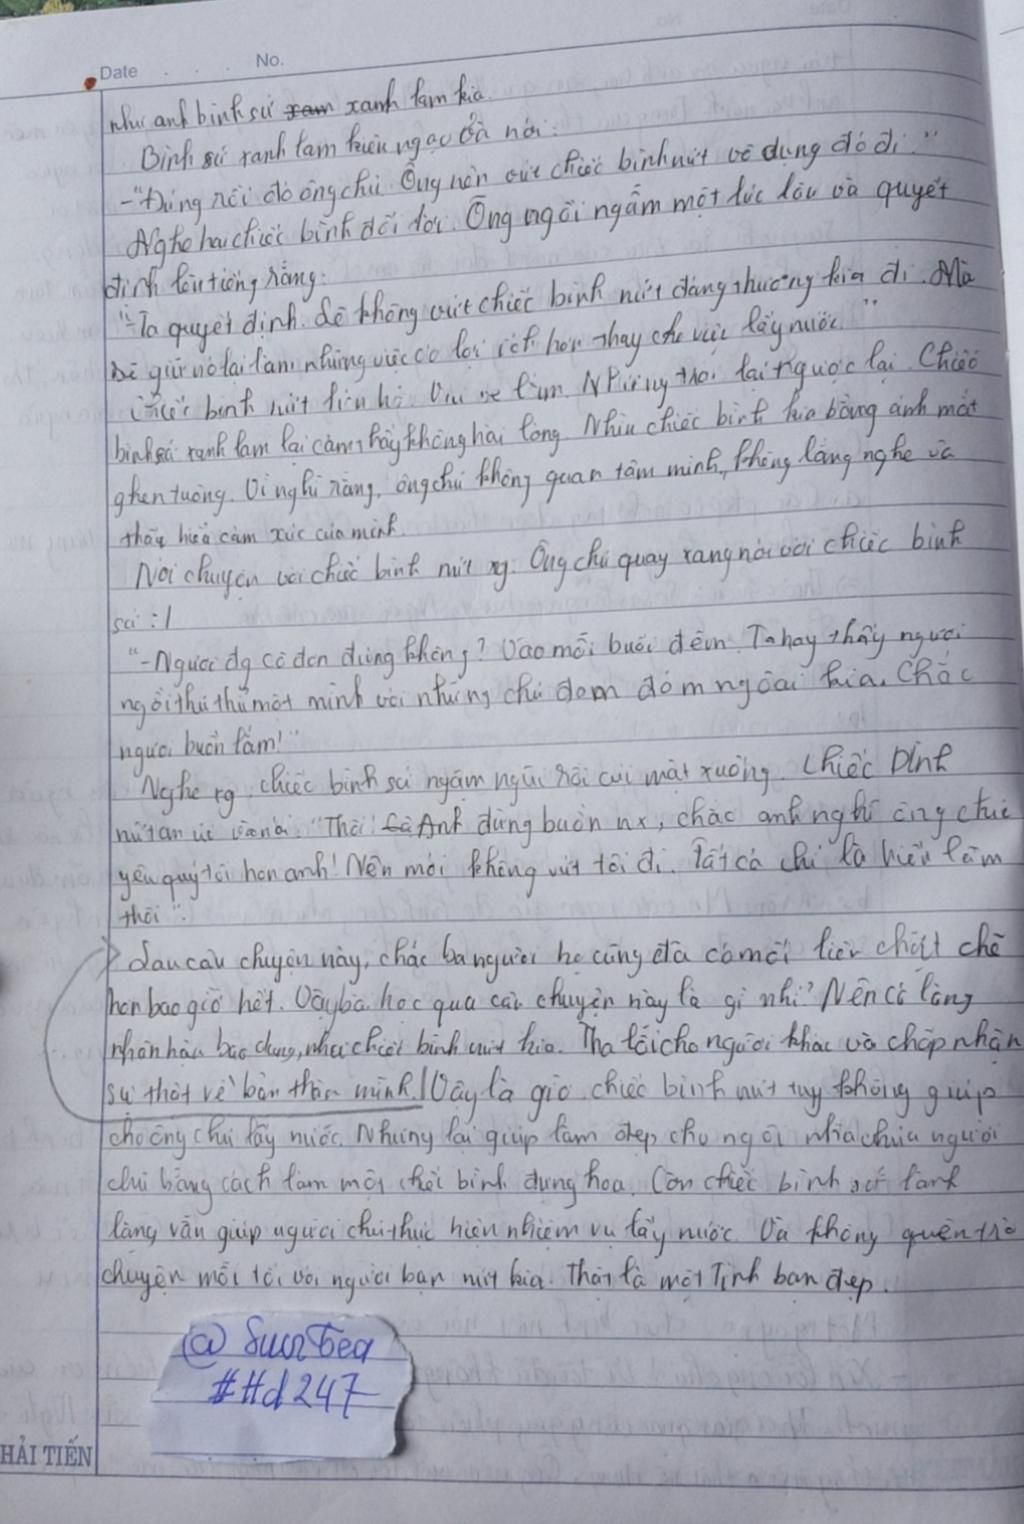 Date . . . No.
như anh bình sứ xam xanh lam kia.
Bình sứ xanh lam kiêu ngạo đã nói:
-"Đúng rồi đó ông chủ. Ông nên vứt chiếc bình nứt vô dụng đó đi."
Nghe hai chiếc bình đối lời. Ông ngồi ngẫm một lúc lâu và quyết
định lên tiếng rằng:
"-Ta quyết định. Sẽ không vứt chiếc bình nứt đáng thương kia đi. Mà
sẽ giữ nó lại làm những việc có lợi ích hơn thay cho việc lấy nước."
Chiếc bình nứt liền hô. Vui vẻ lắm. Nhưng thời lại ngược lại. Chiếc
bình sứ xanh lam lại cảm thấy không hài lòng. Nhìn chiếc bình kia bằng ánh mắt
ghen tuông. Vì nghĩ rằng, ông chủ không quan tâm mình, không lắng nghe và
thấu hiểu cảm xúc của mình.
Nói chuyện với chiếc bình nứt xg. Ông chủ quay xang nói với chiếc bình
sứ :/
"-Ngươi đg cô đơn đúng không? Vào mỗi buổi đêm. Ta hay thấy ngươi
ngồi thủ thỉ một mình với những chú đom đóm ngoài kia. Chắc
ngươi buồn lắm!"
Nghe xg, chiếc bình sứ ngậm ngùi rồi cúi mặt xuống. Chiếc bình
nứt an ủi và nói. "Thôi! Anh đừng buồn nx, chắc anh nghĩ ông chủ
yêu quý tôi hơn anh! Nên mới không vứt tôi đi. Tất cả chỉ là hiểu lầm
thôi".
Sau câu chuyện này, chắc ba người họ cũng đã có mối liên chặt chẽ
hơn bao giờ hết. Vậy bài học qua câu chuyện này là gì nhỉ? Nên có lòng
nhân hậu bao dung, như chiếc bình nứt kia. Tha lỗi cho người khác và chấp nhận
sự thật về bản thân mình. / Vậy là giờ chiếc bình nứt tuy không giúp
cho ông chủ lấy nước. Nhưng lại giúp làm đẹp cho ngôi nhà của người
chủ bằng cách làm một chiếc bình đựng hoa. Còn chiếc bình sứ lành
lặng vẫn giúp người chủ thực hiện nhiệm vụ lấy nước. Và không quên trò
chuyện mỗi tối với người bạn nứt kia. Thật là một Tình bạn đẹp.
@ SunTea
#Hd247
HẢI TIẾN